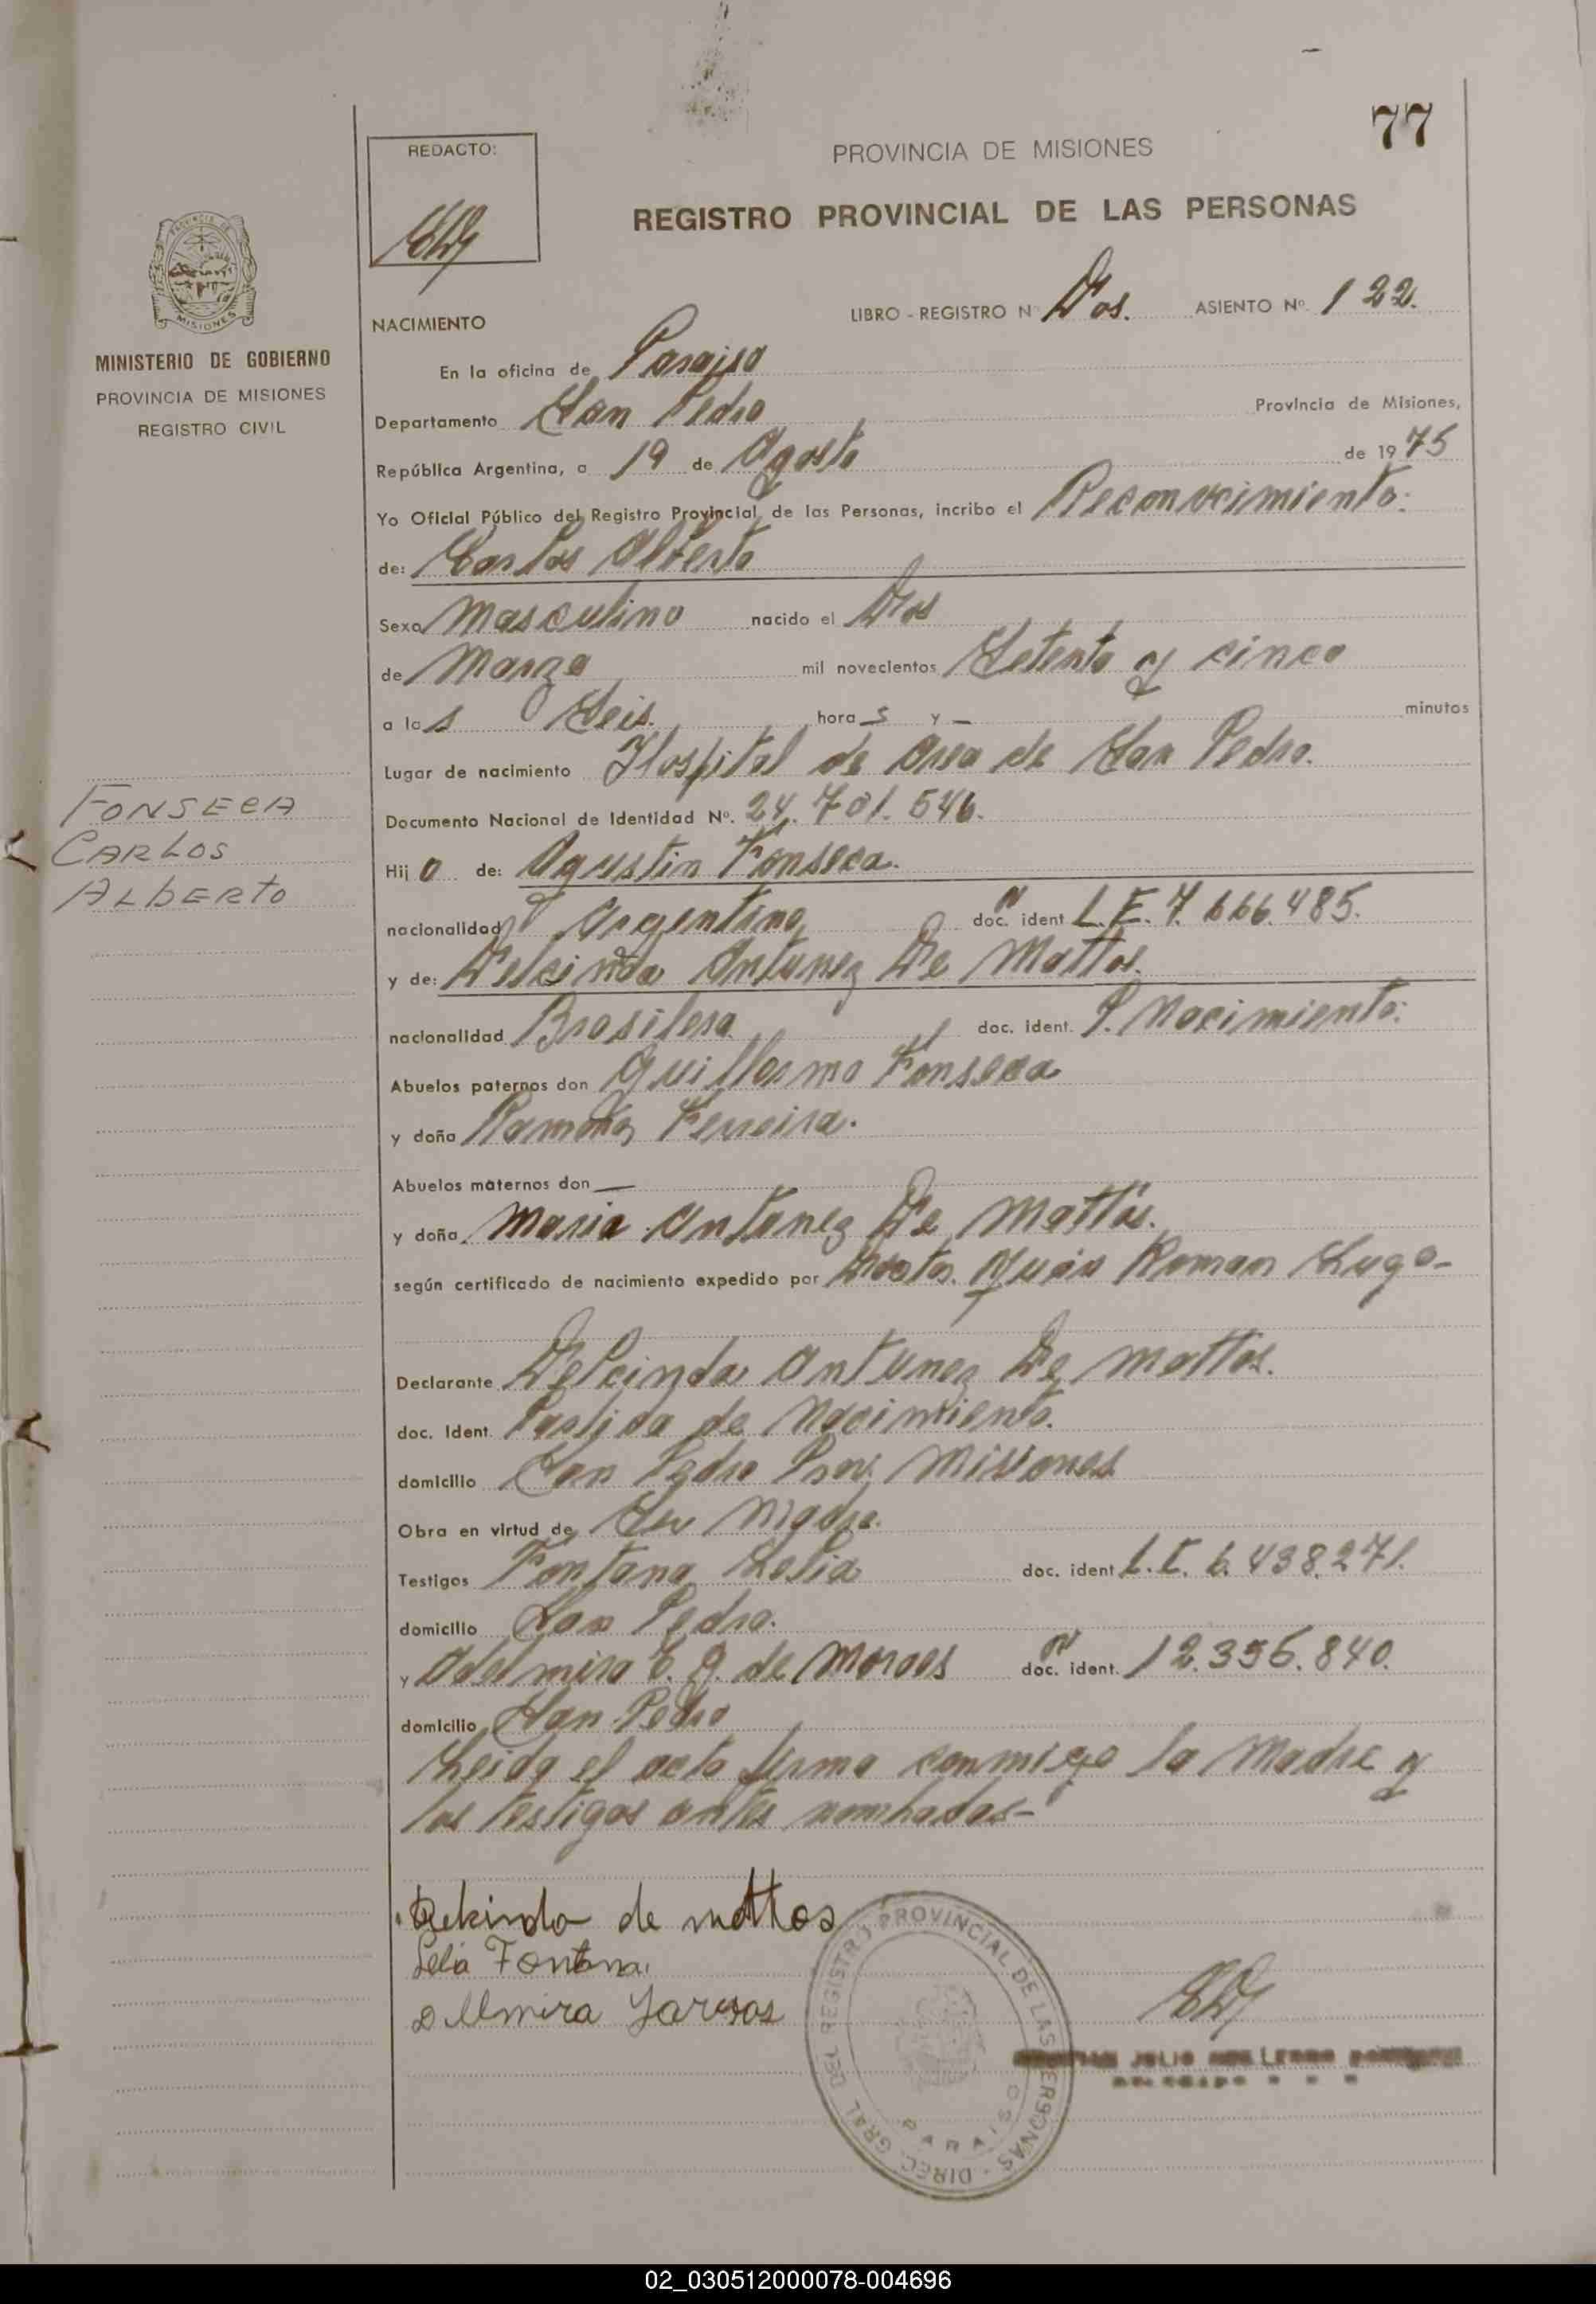 77
REDACTO:
PROVINCIA DE MISIONES
REGISTRO PROVINCIAL DE LAS PERSONAS
MISIONES
MINISTERIO DE GOBIERNO
PROVINCIA DE MISIONES
REGISTRO CIVIL
NACIMIENTO LIBRO - REGISTRO N Dos. ASIENTO Nº 122.
En la oficina de Paraiso
Departamento San Pedro Provincia de Misiones,
República Argentina, a 19 de Agosto de 1975
Yo Oficial Público del Registro Provincial de las Personas, incribo el Reconocimiento.
de: Carlos Alberto
Sexo Masculino nacido el Dos
de Marzo mil novecientos Setenta y cinco
a las Seis. horas y — minutos
Lugar de nacimiento Hospital de Area de San Pedro.
FONSECA
CARLOS
ALBERTO
Documento Nacional de Identidad Nº. 24.701.546.
Hijo de: Agustin Fonseca.
nacionalidad Argentina doc. ident L.E. 7.666.485.
y de: Delcinda Antunez De Mattos.
nacionalidad Brasilera doc. ident. P. Nacimiento.
Abuelos paternos don Guillermo Fonseca
y doña Ramona Ferreira.
Abuelos maternos don —
y doña Maria Antunez De Mattos.
según certificado de nacimiento expedido por Doctor Juan Roman Lugo-
Declarante Delcinda Antunez De Mattos.
doc. Ident. Partida de Nacimiento.
domicilio San Pedro Prov. Misiones
Obra en virtud de Ser Madre.
Testigos Fontana Lelia doc. ident L.C. 6.438.271.
domicilio San Pedro.
y Adelmira C. G. de Moraes doc. ident. 12.356.840.
domicilio San Pedro
Leida el acta firma conmigo la Madre y
los testigos antes nombados-
Delcinda de mattos
Lelia Fontana.
DIREC. GRAL. DEL REGISTRO PROVINCIAL DE LAS PERSONAS
PARAISO
JULIO
02_030512000078-004696